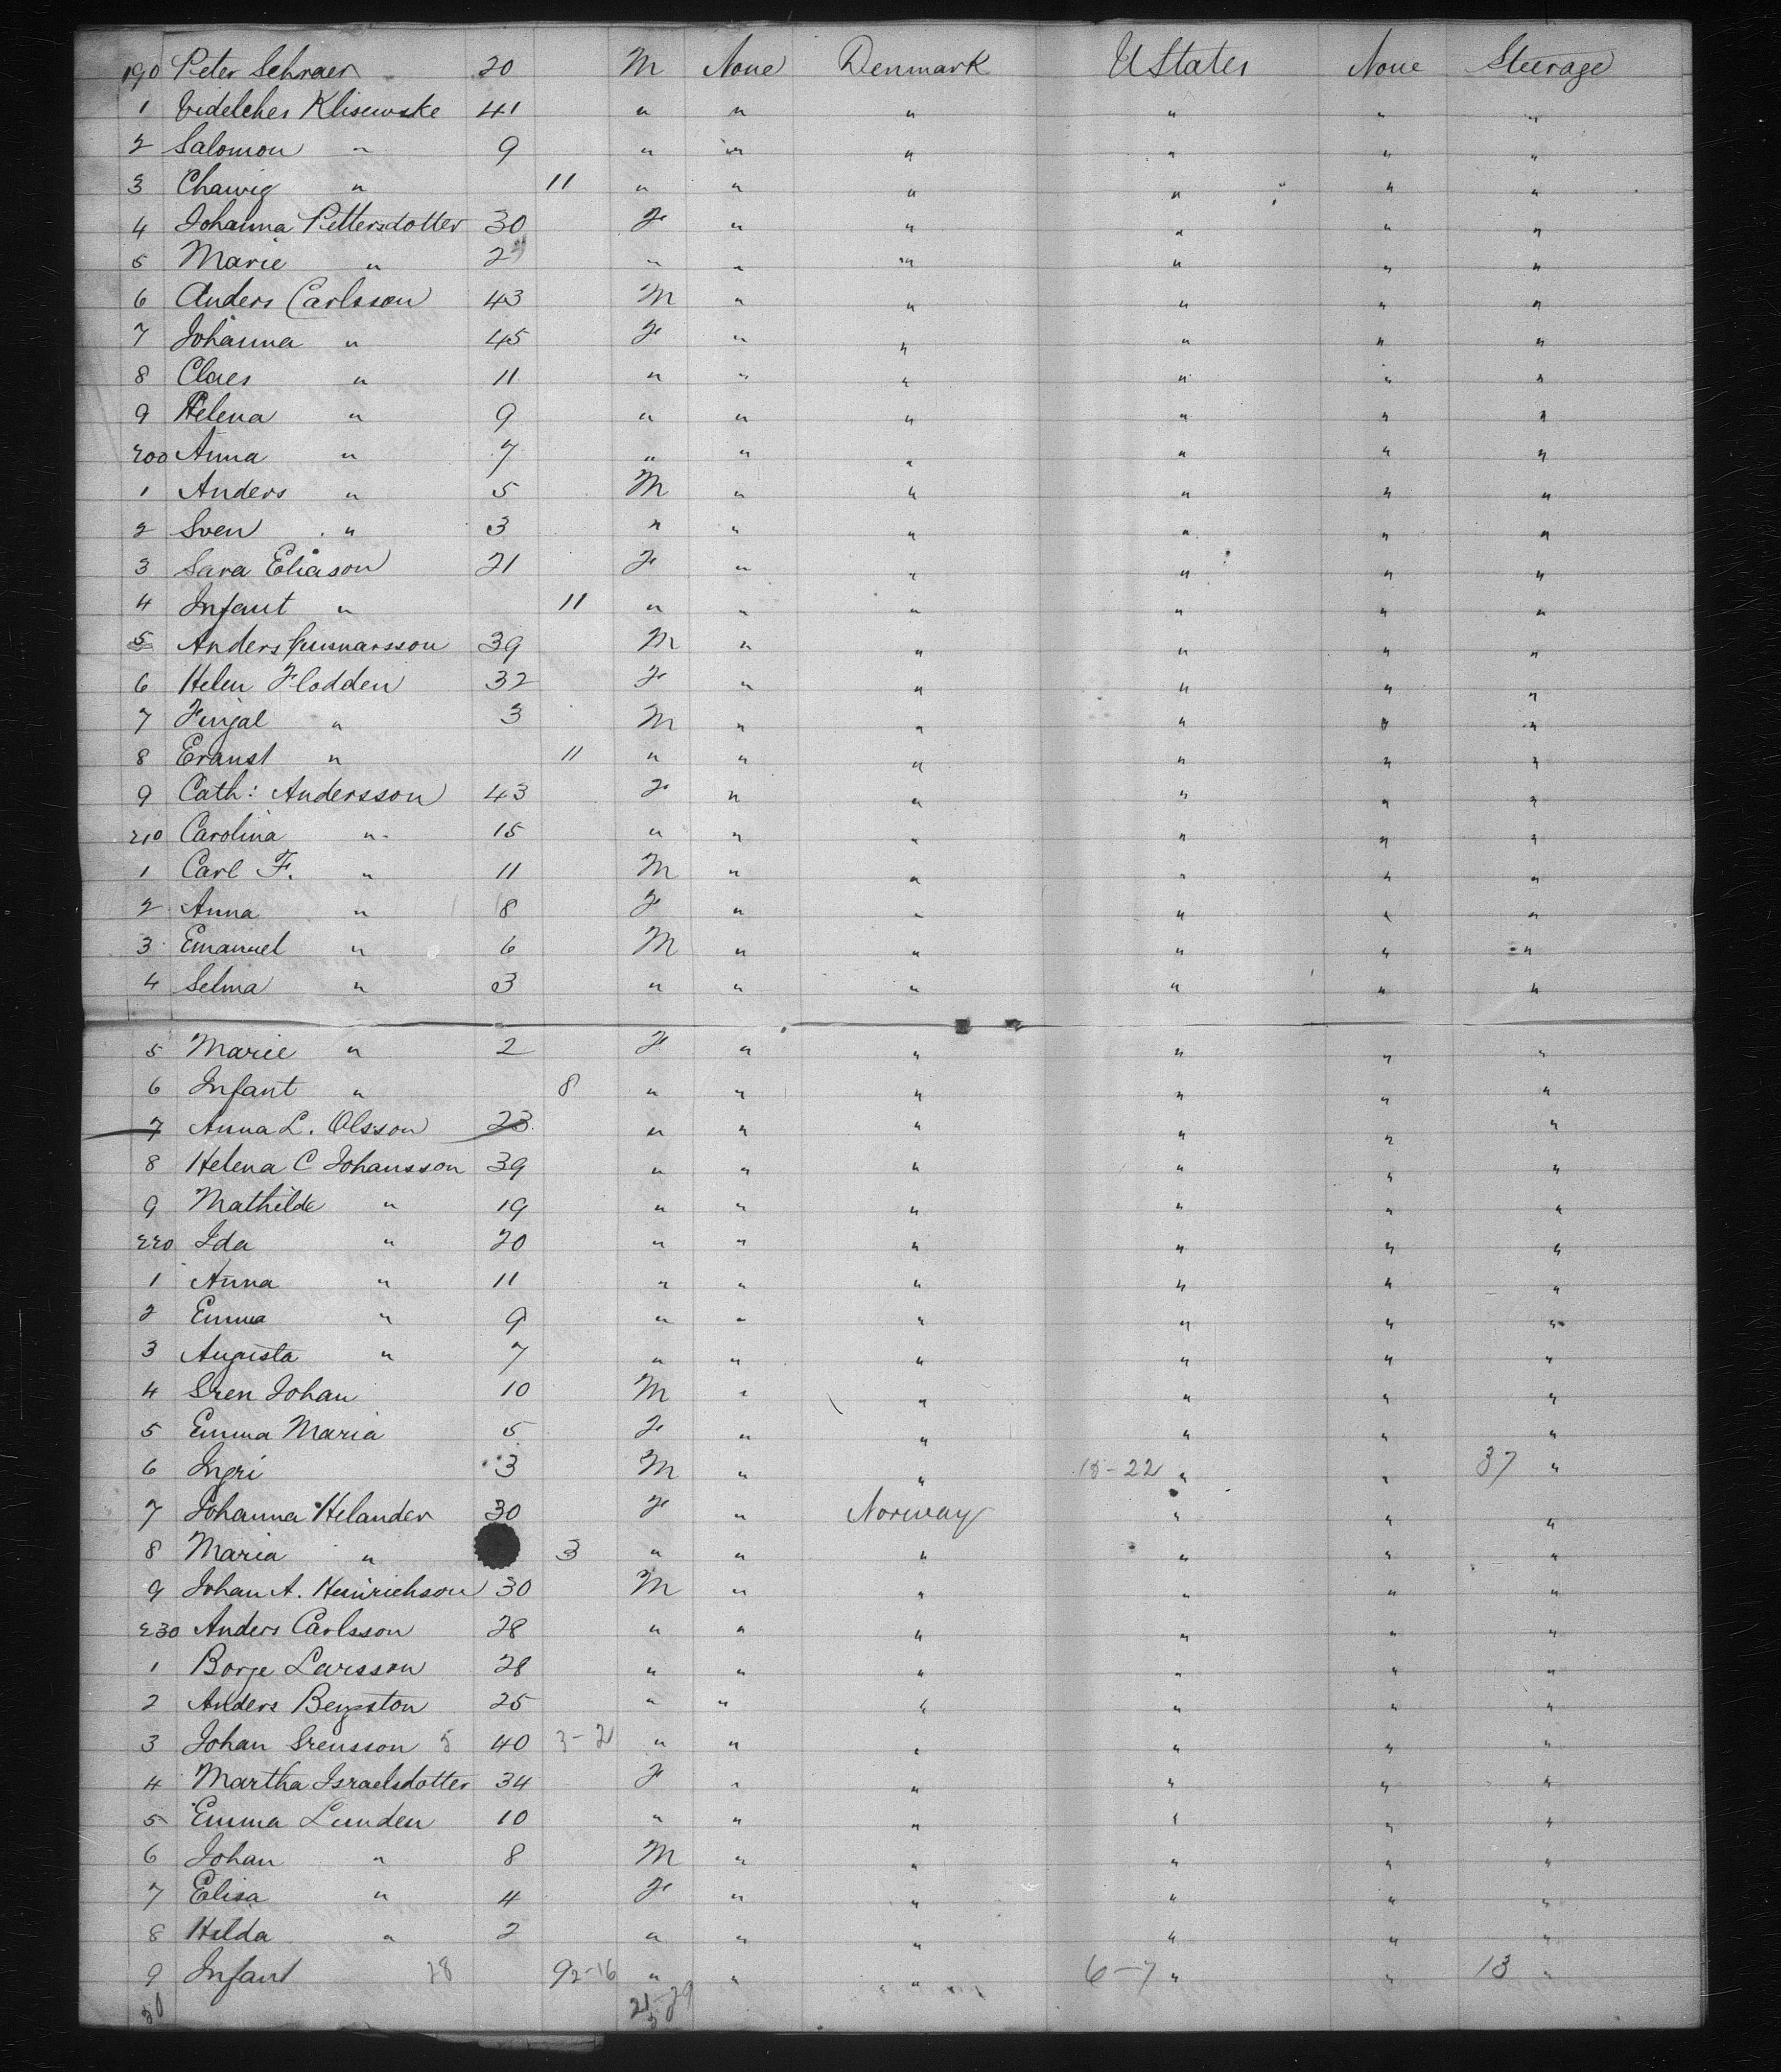 190 Peter Schraer 20 M None Denmark UStates None Steerage
1 Videlches Klisewske 41 " " " " " "
2 Salomon " 9 " " " " " "
3 Chawig " 11 " " " " " "
4 Johanna Pettersdotter 30 F " " " " "
5 Marie " 2 " " " " " "
6 Anders Carlsson 43 M " " " " "
7 Johanna " 45 F " " " " "
8 Claes " 11 " " " " " "
9 Helena " 9 " " " " " "
200 Anna " 7 " " " " " "
1 Anders " 5 M " " " " "
2 Sven " 3 " " " " " "
3 Sara Eliason 21 F " " " " "
4 Infant " 11 " " " " " "
5 Anders Gunnarsson 39 M " " " " "
6 Helen Flodden 32 F " " " " "
7 Finjal " 3 M " " " " "
8 Eranst " 11 " " " " " "
9 Cath: Andersson 43 F " " " " "
210 Carolina " 15 " " " " " "
1 Carl F. " 11 M " " " " "
2 Anna " 8 F " " " " "
3 Emanuel " 6 M " " " " "
4 Selma " 3 " " " " " "
5 Marie " 2 F " " " " "
6 Infant " 8 " " " " " "
7 Anna L. Olsson 23 " " " " " "
8 Helena C Johansson 39 " " " " " "
9 Mathilde " 19 " " " " " "
220 Ida " 20 " " " " " "
1 Anna " 11 " " " " " "
2 Emma " 9 " " " " " "
3 Augusta " 7 " " " " " "
4 Sven Johan 10 M " " " " "
5 Emma Maria 5 F " " " " "
6 Ingri 3 M " " 15-22 " " 37 "
7 Johanna Helander 30 F " Norway " " "
8 Maria " 3 " " " " " "
9 Johan A. Heinrichson 30 M " " " " "
230 Anders Carlsson 28 " " " " " "
1 Borje Larsson 28 " " " " " "
2 Anders Bengston 25 " " " " " "
3 Johan Svensson 5 40 3-2 " " " " " "
4 Martha Israelsdotter 34 F " " " " "
5 Emma Lunden 10 " " " " " "
6 Johan " 8 M " " " " "
7 Elisa " 4 F " " " " "
8 Hilda " 2 " " " " " "
9 Infant 28 9 2-16 " " " 6-7 " " 13 "
50 21-29
3